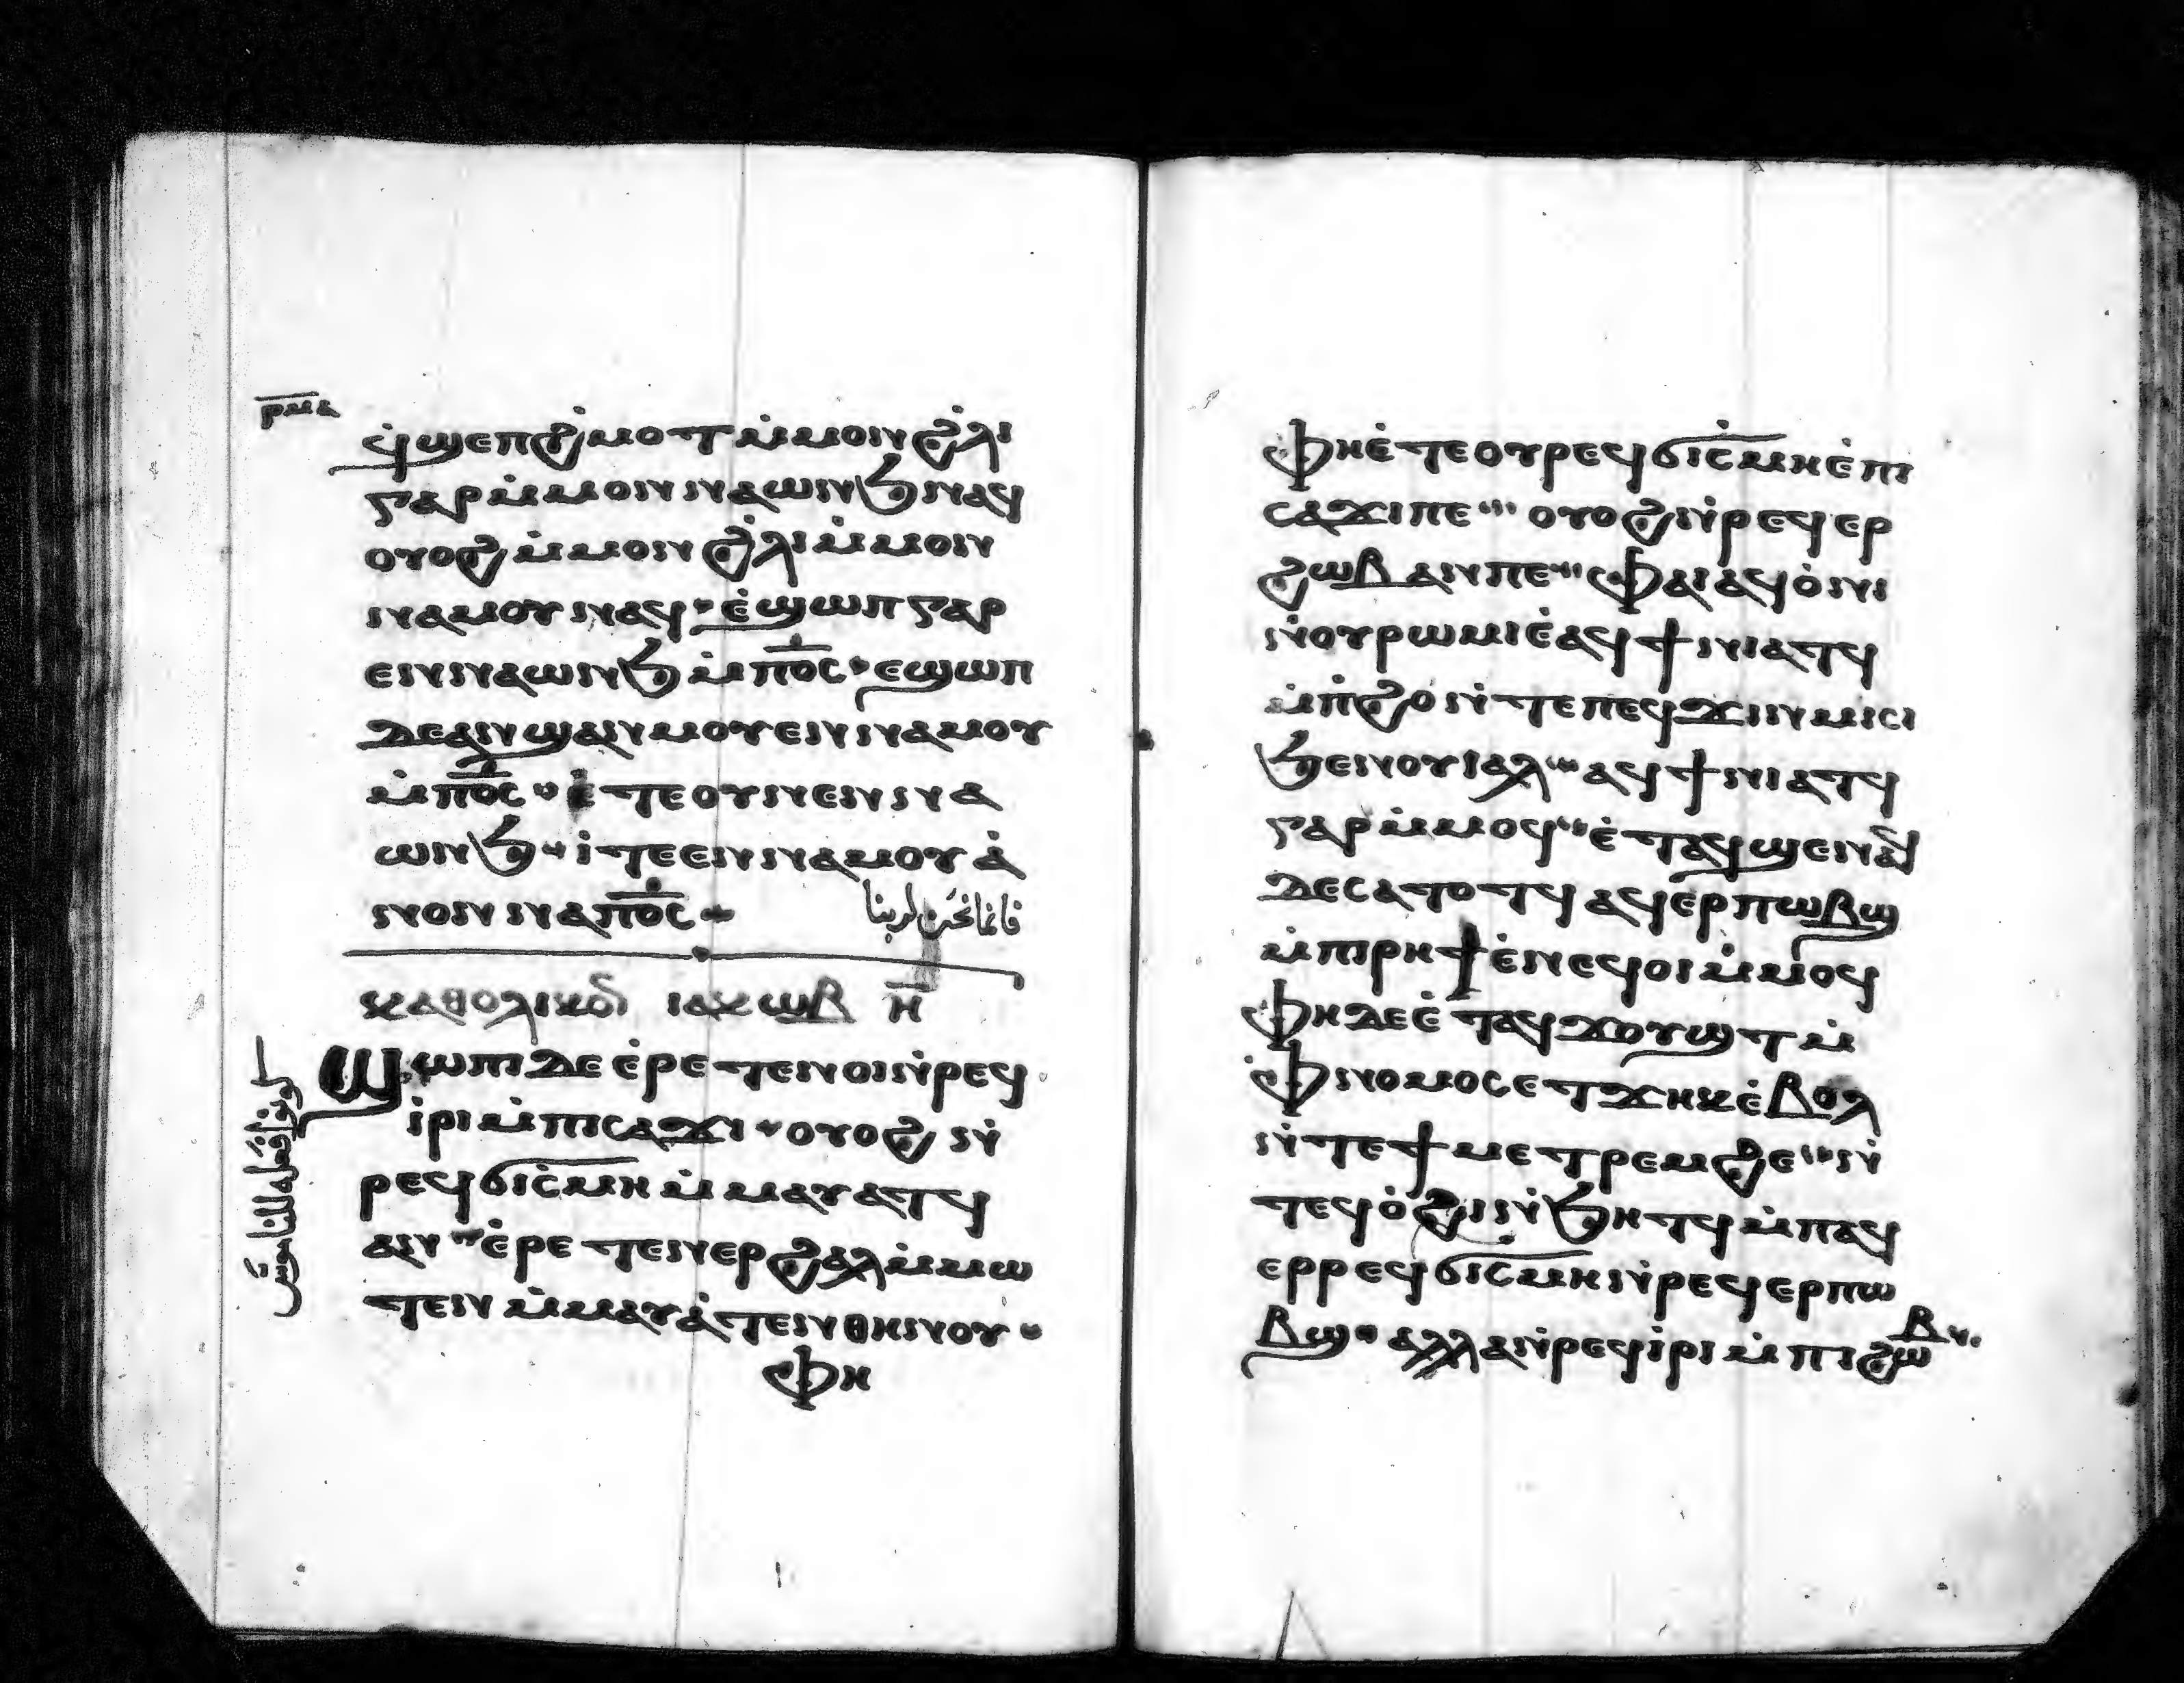 ⲣⲙⲁ
ϥ̇ϣⲉⲡϩ̇ⲙⲟⲧ ⲙ̇ⲙⲟⲛ ϩ̇ⲗⲓ
ⲅⲁⲣ ⲙ̇ⲙⲟⲛ ⲛⲁⲱⲛϧ ⲛⲁϥ
ⲟⲩⲟϩ ⲙ̇ⲙⲟⲛ ϩ̇ⲗⲓ ⲙ̇ⲙⲟⲛ
ⲛⲁⲙⲟⲩ ⲛⲁϥ ⲉ̇ϣⲱⲡ ⲅⲁⲣ
ⲉⲛⲛⲁⲱⲛϧ ⲙ̇ⲡⲟ̅ⲥ̅ ⲉϣⲱⲡ
ⲇⲉ ⲁⲛϣⲁⲛⲙⲟⲩ ⲉⲛⲛⲁⲙⲟⲩ
ⲙ̇ⲡⲟ̅ⲥ̅ ⲉ̇ⲧⲉ ⲟⲩⲛ ⲉⲛⲛⲁ
ⲱⲛϧ ⲓ̇ⲧⲉ ⲉⲛⲛⲁⲙⲟⲩ ⲁ̇
ⲛⲟⲛ ⲛⲁⲡⲟ̅ⲥ̅
فانما نحن لربنا
ⲕⲁⲑⲟⲗⲓⲕⲟⲛ ⲓⲁⲕⲱⲃ ⲏ̅
ϣⲱⲡⲓ ⲇⲉ ⲉ̇ⲣⲉⲧⲉⲛⲟⲓ ⲛ̇ⲣⲉϥ
ⲓ̇ⲣⲓ ⲙ̇ⲡⲓⲥⲁϫⲓ ⲟⲩⲟϩ ⲛ̇
ⲣⲉϥϭⲓⲥ̇ⲙⲏ ⲙ̇ⲙⲁⲩⲁⲧϥ
ⲁⲛ ⲉ̇ⲣⲉⲧⲉⲛⲉⲣϩⲁⲗ ⲙ̇ⲙⲱ
ⲧⲉⲛ ⲙ̇ⲙⲁⲩⲁ̇ⲧⲉⲛⲑⲏⲛⲟⲩ
ⲫⲏ
ⲫⲏ ⲉ̇ⲧⲉ ⲟⲩⲣⲉϥϭⲓⲥ̇ⲙⲏ ⲉ̇ⲡⲓ
ⲥⲁϫⲓ ⲡⲉ ⲟⲩⲟϩ ⲛ̇ⲣⲉϥⲉⲣ
ϩⲱⲃ ⲁⲛ ⲡⲉ ⲫⲁⲓ ⲁϥⲟ̇ⲛⲓ
ⲛ̇ⲟⲩⲣⲱⲙⲓ ⲉ̇ⲁϥϯⲛⲓⲁⲧϥ
ⲙ̇ⲡ̇ϩⲟ ⲛ̇ⲧⲉ ⲡⲉϥϫⲓⲛⲙⲓⲥⲓ
ϧⲉⲛ ⲟⲩⲓⲁⲗ ⲁϥϯⲛⲓⲁⲧϥ
ⲅⲁⲣ ⲙ̇ⲙⲟϥ ⲉ̇ⲧⲁϥϣⲉⲛⲁϥ
ⲇⲉ ⲥⲁⲧⲟⲧϥ ⲁϥⲉⲣⲡⲱⲃϣ
ⲙ̇ⲡⲓⲣⲏϯ ⲉ̇ⲛⲉϥⲟⲓ ⲙ̇ⲙⲟϥ
ⲫⲏ ⲇⲉ ⲉ̇ⲧⲁϥϫⲟⲩϣⲧ ⲙ̇
ⲫⲛⲟⲙⲟⲥ ⲉⲧϫⲏⲕ ⲉ̇ⲃⲟⲗ
ⲛ̇ⲧⲉ ϯⲙⲉⲧⲣⲉⲙϩⲉ ⲛ̇
ⲧⲉϥⲟ̇ϩⲓ ⲛ̇ϧⲏⲧϥ ⲙ̇ⲡⲁϥ
ⲉⲣⲣⲉϥϭⲓⲥⲙⲏ ⲛ̇ⲣⲉϥⲉⲣⲡⲱ
ⲃϣ ⲁⲗⲗⲁ ⲛ̇ⲣⲉϥⲓ̇ⲣⲓ ⲙ̇ⲡⲓϩⲱⲃ